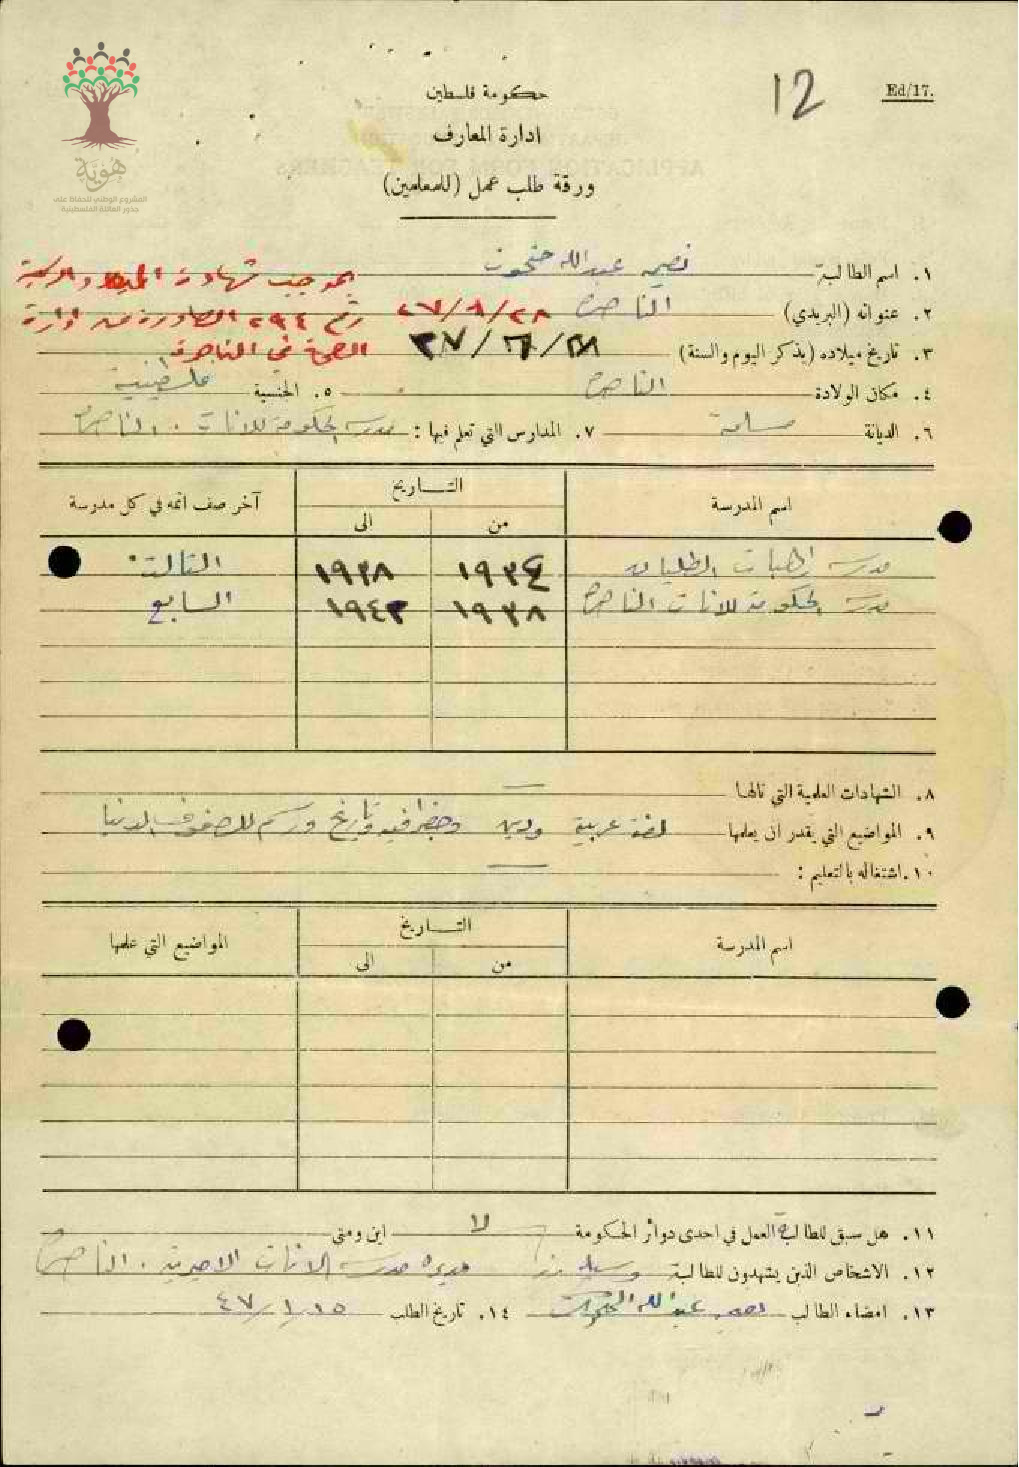 هوية
المشروع الوطني للحفاظ على
جذور العائلة الفلسطينية
12
Ed/17.
حكومة فلسطين
ادارة المعارف
ورقة طلب عمل (للمعلمين)
١. اسم الطالبة عبدالله بموجب شهادة الميلاد الرسمية
٢. عنوانه (البريدي) الناصرة ٢٧/٨/٢٨ رقم ٢٩٤ الصادرة من ادارة
٣. تاريخ ميلاده (يذكر اليوم والسنة) ٢٧/٦/٢٨ الصحة في الناصرة
٤. مكان الولادة الناصرة ٥. الجنسية فلسطينية
٦. الديانة مسلمة ٧. المدارس التي تعلم فيها: مدرسة الحكومة للاناث. الناصرة
اسم المدرسة التاريخ آخر صف اتمه في كل مدرسة
من الى
مدرسة راهبات الطليان ١٩٣٤ ١٩٣٨ الثالث
مدرسة الحكومة للاناث الناصرة ١٩٣٨ ١٩٤٣ السابع
٨. الشهادات العلمية التي نالها —
٩. المواضيع التي يقدر ان يعلمها لغة عربية ودين وجغرافيه وتاريخ ورسم للصفوف الدنيا
١٠. اشتغاله بالتعليم: —
اسم المدرسة التاريخ المواضيع التي علمها
من الى
١١. هل سبق للطالبة العمل في احدى دوائر الحكومة لا اين ومتى
١٢. الاشخاص الذين يشهدون للطالبة مديرة مدرسة الاناث الاميرية. الناصرة
١٣. امضاء الطالب عبدالله ١٤. تاريخ الطلب ٤٧/١/١٥